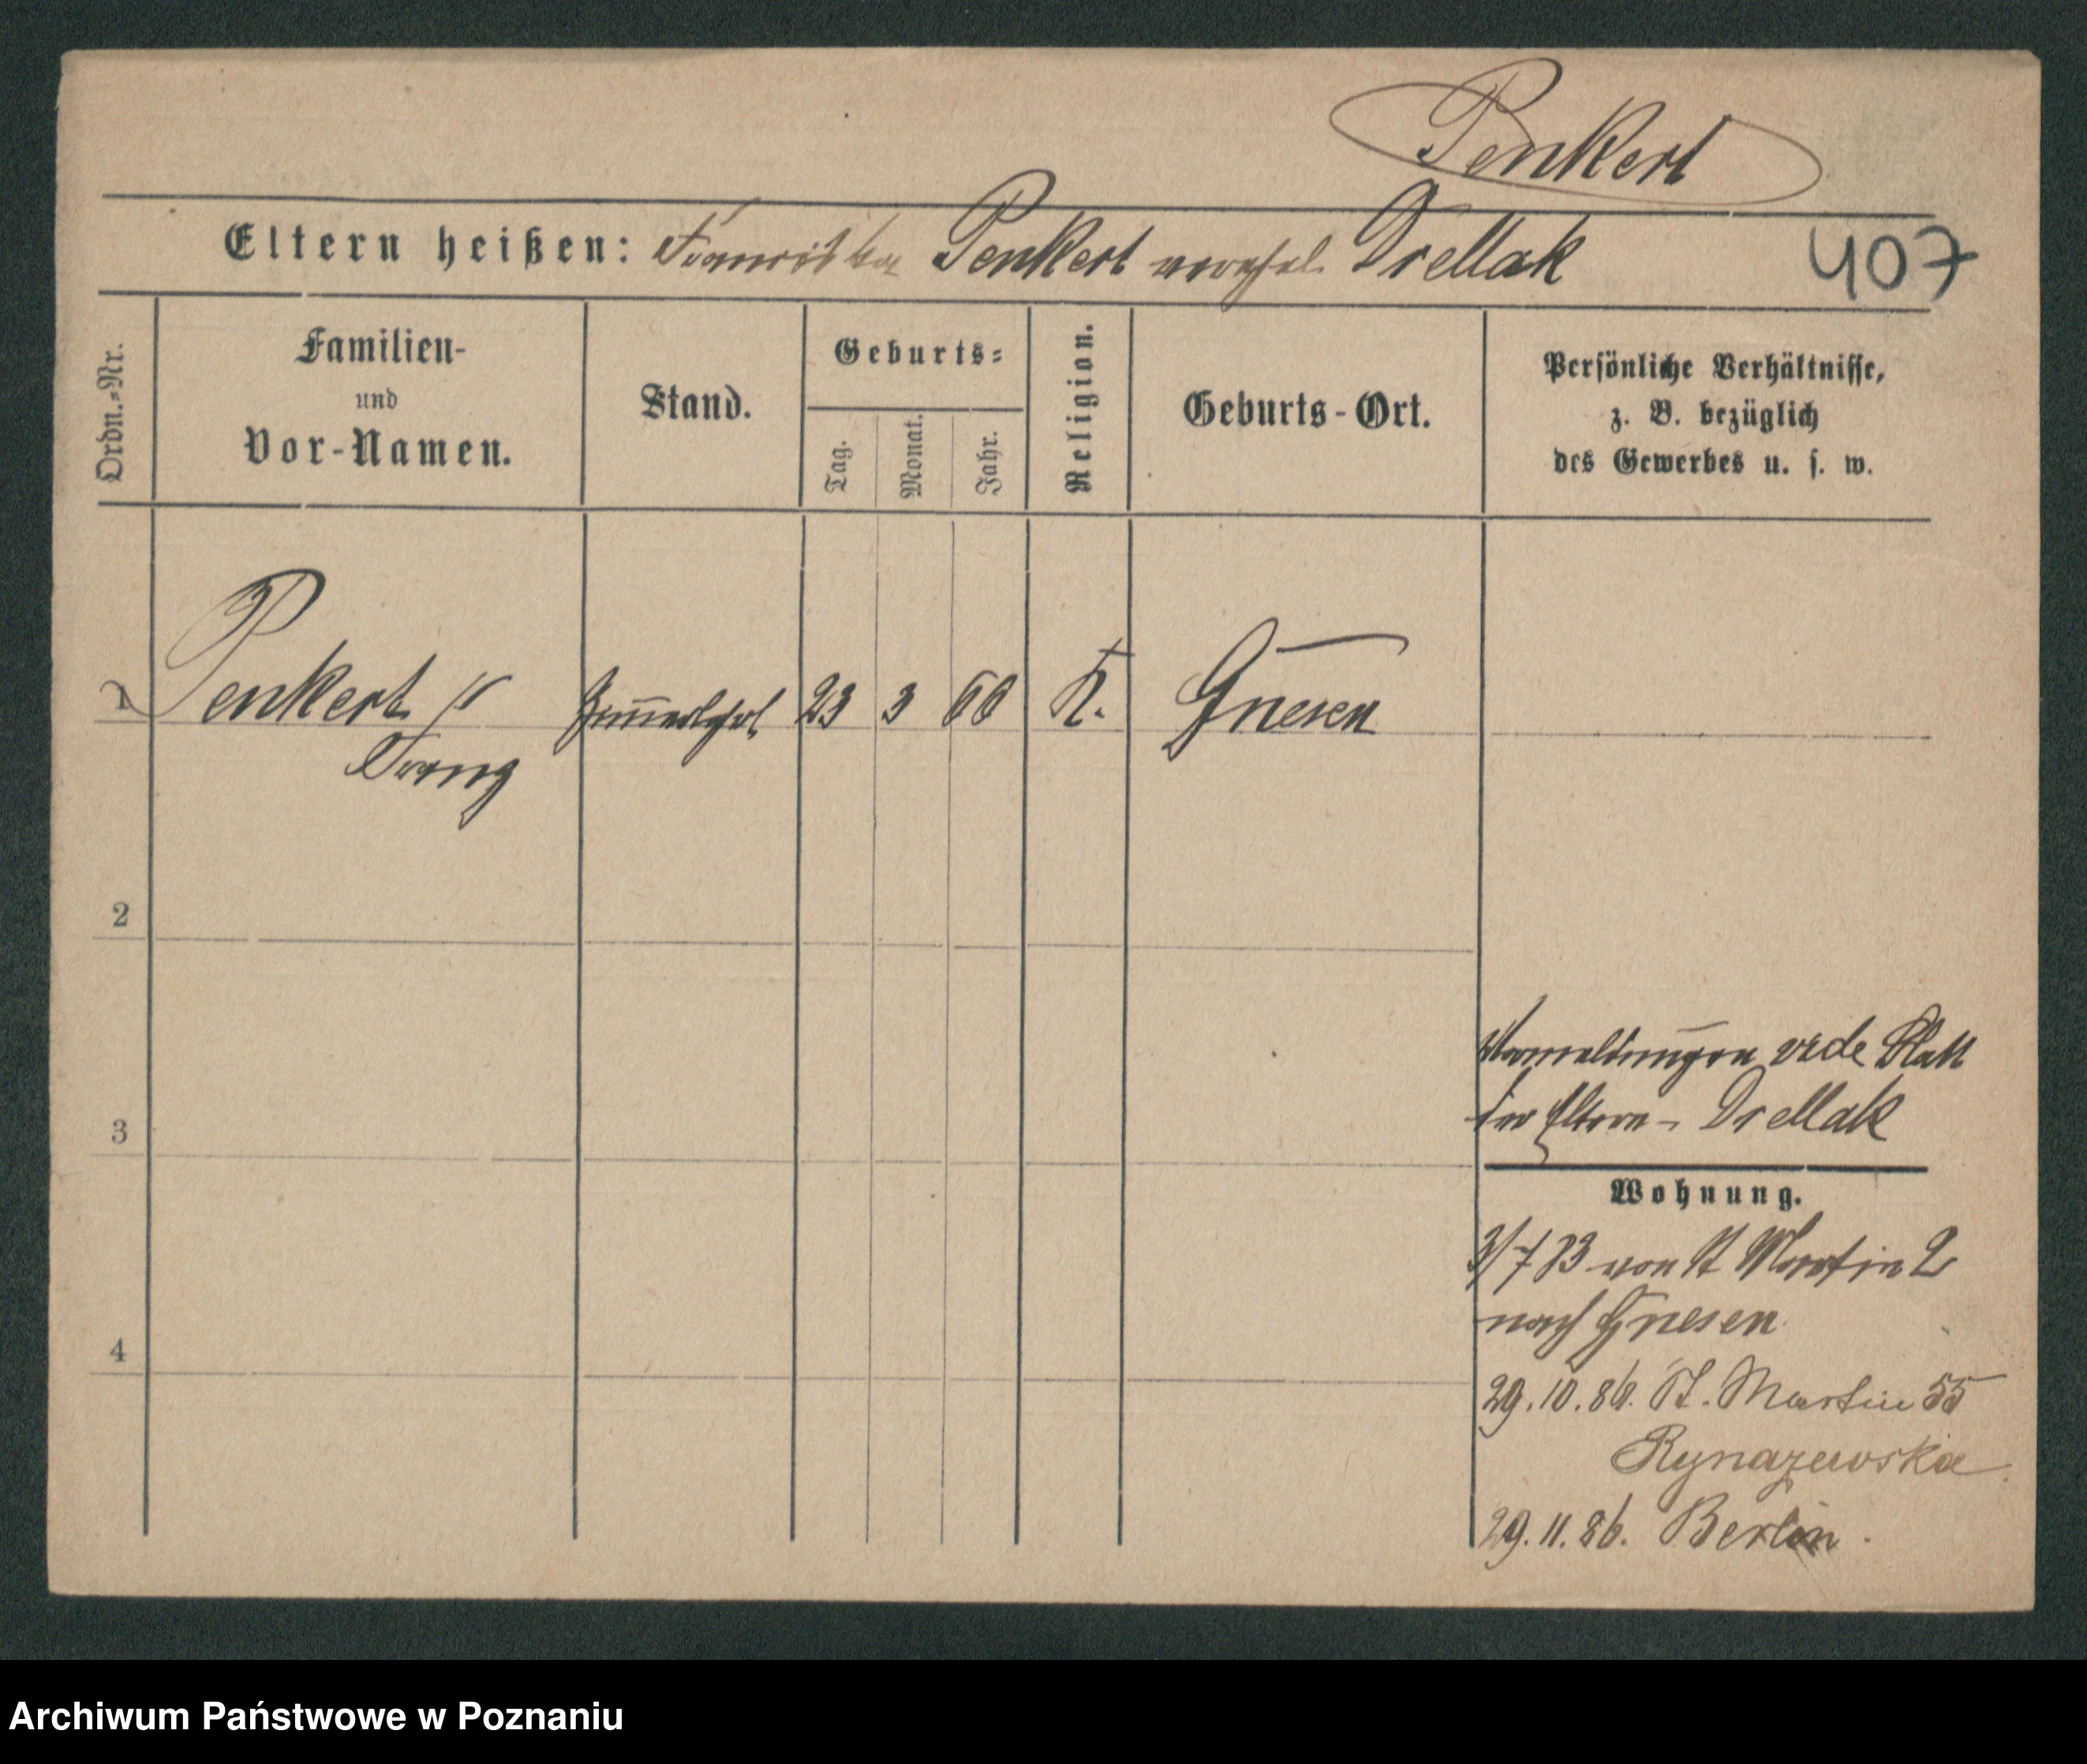 Penkert
Eltern heißen: Franziska Penkert verehel. Drellak
407
Ordn.-Nr.
Familien-
und
Vor-Namen.
Stand.
Geburts-
Tag.
Monat.
Jahr.
Religion.
Geburts-Ort.
Persönliche Verhältnisse,
z. B. bezüglich
des Gewerbes u. s. w.
1 Penkert 23 3 66 K. Gnesen
Franz
2
3
4
Anmeldungen vide Blatt
der Eltern - Drellak
Wohnung.
3/7 83 von St Martin 2
nach Gnesen
29.10.86. St. Martin 55
Rynarzewska
29.11.86. Berlin.
Archiwum Państwowe w Poznaniu